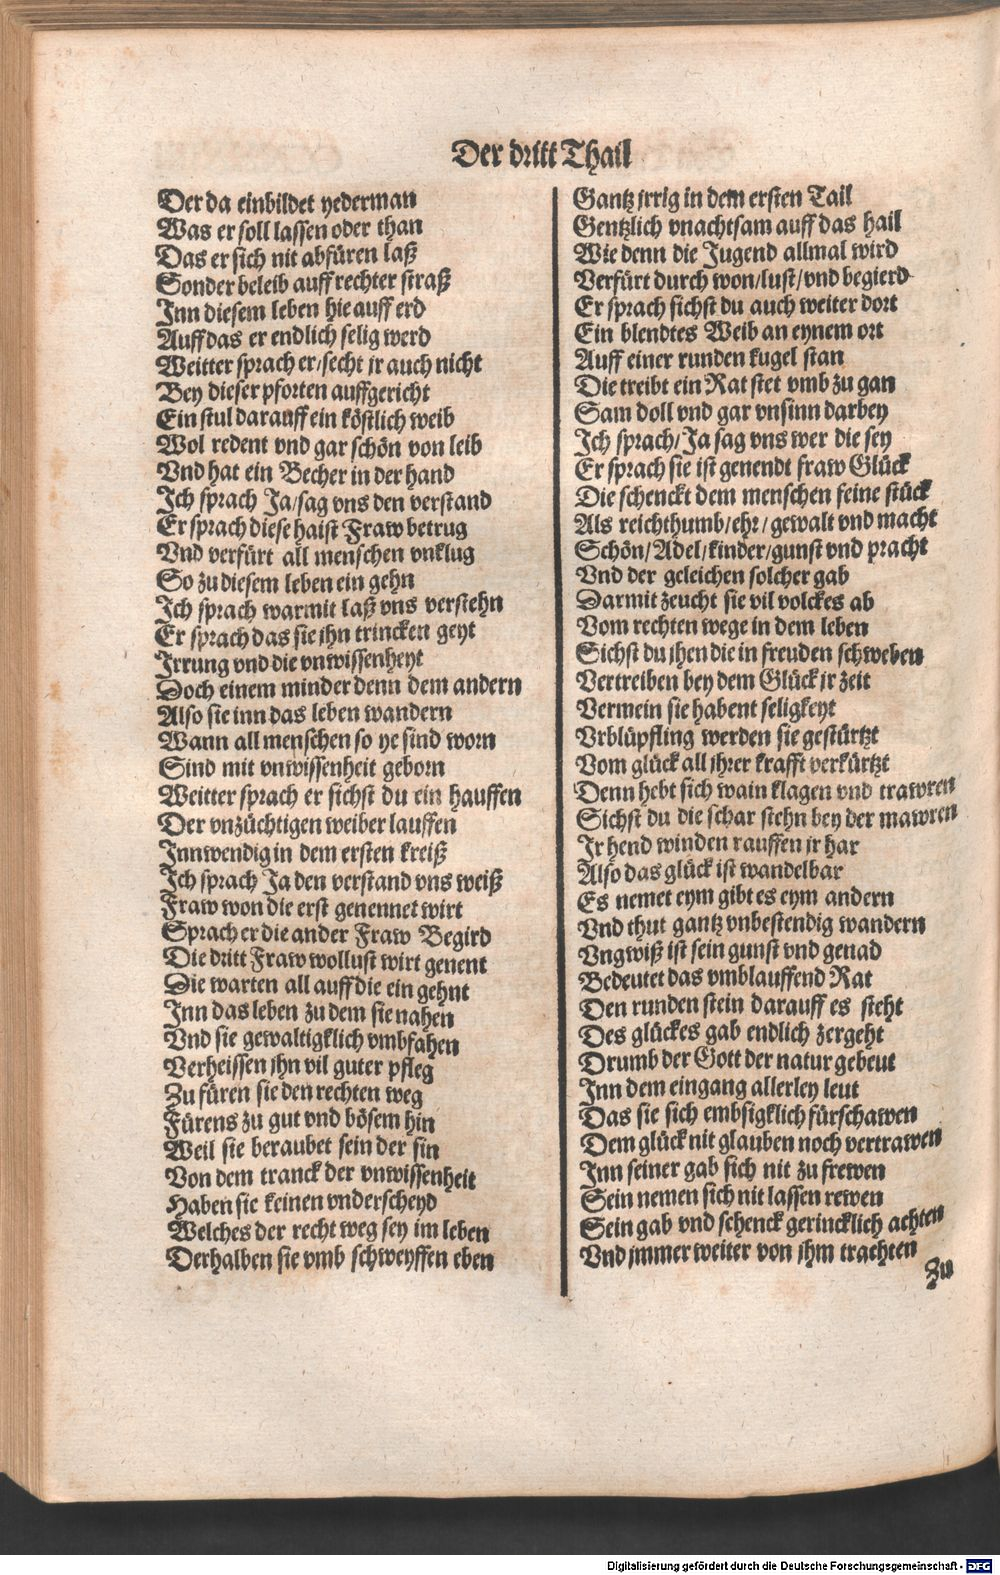 Der dritt Thail
Der da einbildet yederman
Was er soll lassen oder than
Das er sich nit abfüren laß
Sonder beleib auff rechter straß
Inn diesem leben hie auff erd
Auff das er endlich selig werd
Weitter sprach er/secht jr auch nicht
Bey dieser pforten auffgericht
Ein stul darauff ein köstlich weib
Wol redent vnd gar schön von leib
Vnd hat ein Becher in der hand
Ich sprach Ja/sag vns den verstand
Er sprach diese haist Fraw betrug
Vnd verfürt all menschen vnklug
So zu diesem leben ein gehn
Ich sprach warmit laß vns verstehn
Er sprach das sie jhn trincken geyt
Irrung vnd die vnwissenheyt
Doch einem minder denn dem andern
Also sie inn das leben wandern
Wann all menschen so ye sind worn
Sind mit vnwissenheit geborn
Weitter sprach er sichst du ein hauffen
Der vnzüchtigen weiber lauffen
Innwendig in dem ersten kreiß
Ich sprach Ja den verstand vns weiß
Fraw won die erst genennet wirt
Sprach er die ander Fraw Begird
Die dritt Fraw wollust wirt genent
Die warten all auff die ein gehnt
Inn das leben zu dem sie nahen
Vnd sie gewaltigklich vmbfahen
Verheissen jhn vil guter pfleg
Zu füren sie den rechten weg
Fürens zu gut vnd bösem hin
Weil sie beraubet sein der sin
Von dem tranck der vnwissenheit
Haben sie keinen vnderscheyd
Welches der recht weg sey im leben
Derhalben sie vmb schweyffen eben
Gantz jrrig in dem ersten Tail
Gentzlich vnachtsam auff das hail
Wie denn die Jugend allmal wird
Verfürt durch won/lust/vnd begierd
Er sprach sichst du auch weiter dort
Ein blendtes Weib an eynem ort
Auff einer runden kugel stan
Die treibt ein Rat stet vmb zu gan
Sam doll vnd gar vnsinn darbey
Ich sprach/Ja sag vns wer die sey
Er sprach sie ist genendt fraw Glück
Die schenckt dem menschen seine stück
Als reichthumb/ehr/gewalt vnd macht
Schön/Adel/kinder/gunst vnd pracht
Vnd der geleichen solcher gab
Darmit zeucht sie vil volckes ab
Vom rechten wege in dem leben
Sichst du jhen die in freuden schweben
Vertreiben bey dem Glück jr zeit
Vermein sie habent seligkeyt
Vrblüpfling werden sie gestürtzt
Vom glück all jhrer krafft verkürtzt
Denn hebt sich wain klagen vnd trawren
Sichst du die schar stehn bey der mawren
Ir hend winden rauffen jr har
Also das glück ist wandelbar
Es nemet eym gibt es eym andern
Vnd thut gantz vnbestendig wandern
Vngwiß ist sein gunst vnd genad
Bedeutet das vmblauffend Rat
Den runden stein darauff es steht
Des glückes gab endlich zergeht
Drumb der Gott der natur gebeut
Inn dem eingang allerley leut
Das sie sich embsigklich fürschawen
Dem glück nit glauben noch vertrawen
Inn seiner gab sich nit zu frewen
Sein nemen sich nit lassen rewen
Sein gab vnd schenck gerincklich achten
Vnd jmmer weiter von jhm trachten
Zu
Digitalisierung gefördert durch die Deutsche Forschungsgemeinschaft - DFG